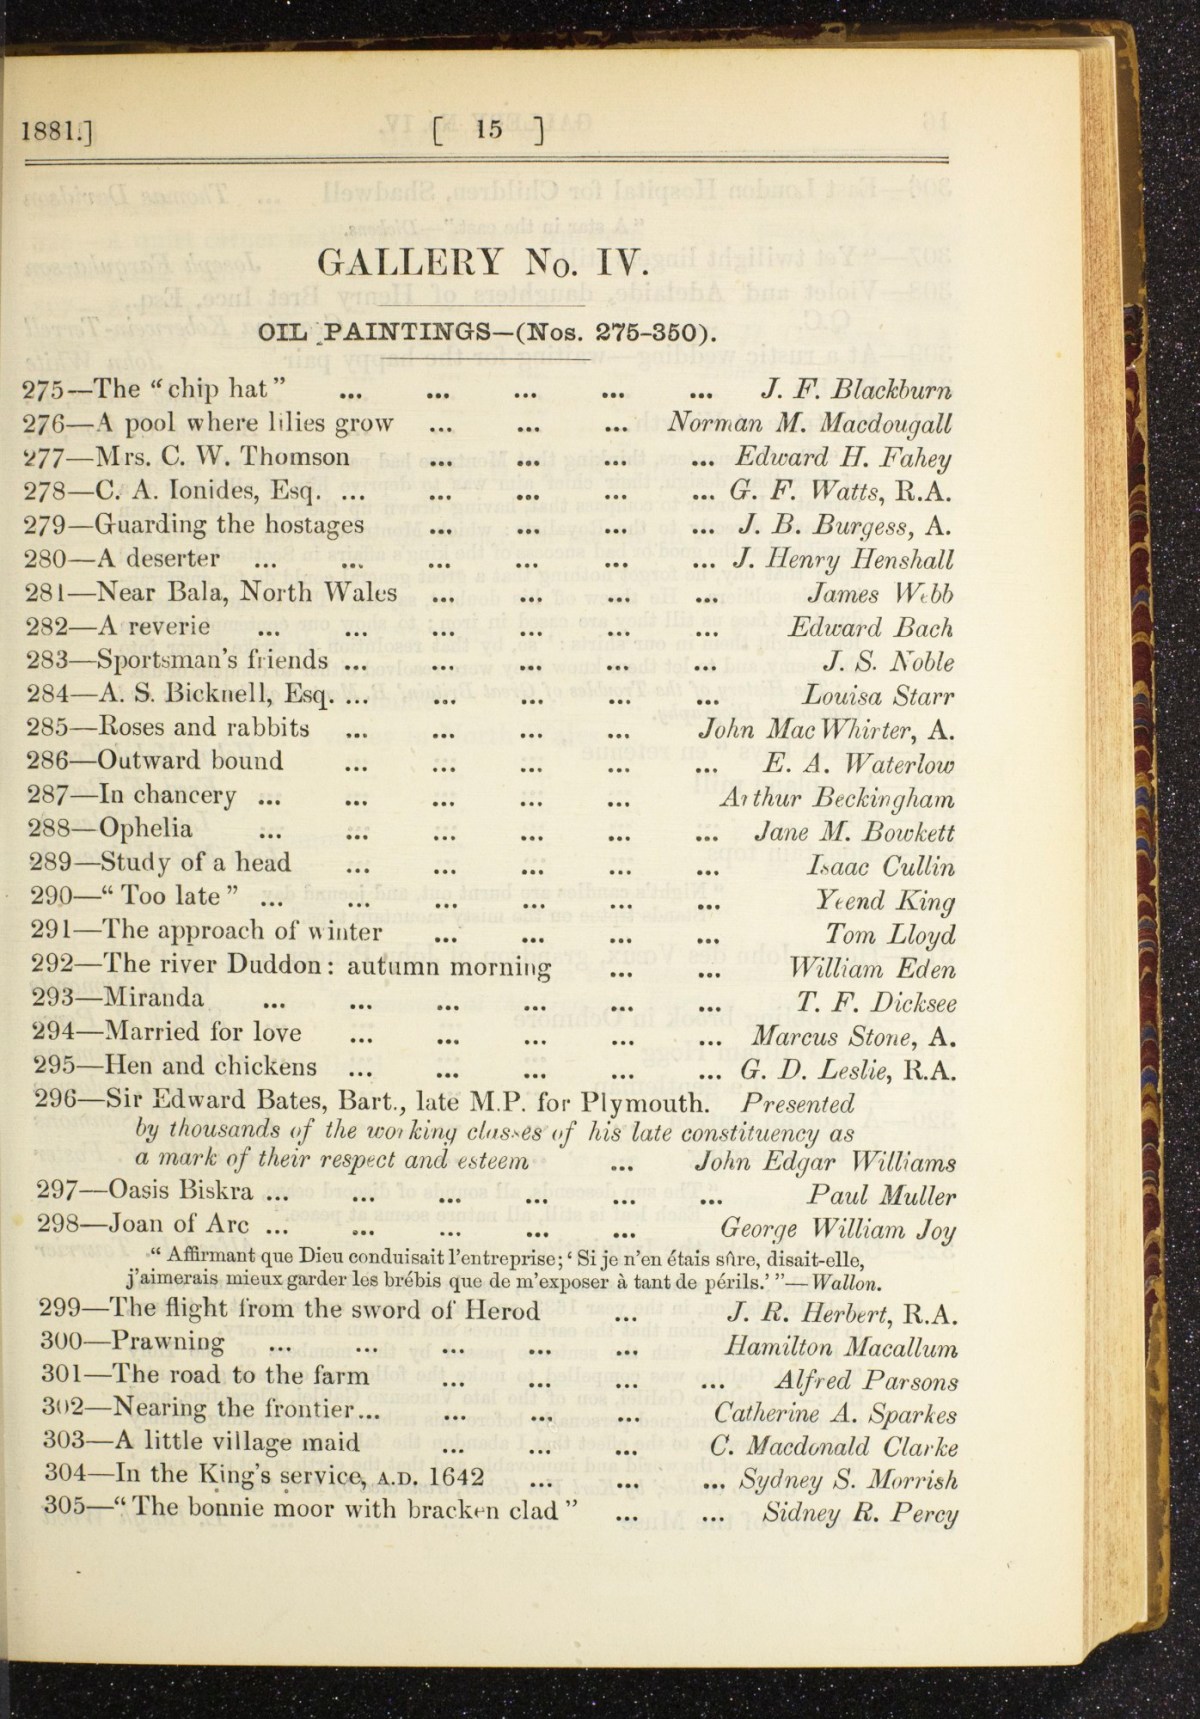 1881.] [ 15 ]
GALLERY No. IV.
OIL PAINTINGS—(Nos. 275-350).
275—The "chip hat" ... ... ... ... ... J. F. Blackburn
276—A pool where lilies grow ... ... ... Norman M. Macdougall
277—Mrs. C. W. Thomson ... ... ... ... Edward H. Fahey
278—C. A. Ionides, Esq. ... ... ... ... ... G. F. Watts, R.A.
279—Guarding the hostages ... ... ... ... J. B. Burgess, A.
280—A deserter ... ... ... ... ... ... J. Henry Henshall
281—Near Bala, North Wales ... ... ... ... James Webb
282—A reverie ... ... ... ... ... ... Edward Bach
283—Sportsman's friends ... ... ... ... ... J. S. Noble
284—A. S. Bicknell, Esq. ... ... ... ... ... Louisa Starr
285—Roses and rabbits ... ... ... ... John MacWhirter, A.
286—Outward bound ... ... ... ... ... E. A. Waterlow
287—In chancery ... ... ... ... ... Arthur Beckingham
288—Ophelia ... ... ... ... ... ... Jane M. Bowkett
289—Study of a head ... ... ... ... ... Isaac Cullin
290—"Too late" ... ... ... ... ... ... Yeend King
291—The approach of winter ... ... ... ... Tom Lloyd
292—The river Duddon: autumn morning ... ... William Eden
293—Miranda ... ... ... ... ... ... T. F. Dicksee
294—Married for love ... ... ... ... ... Marcus Stone, A.
295—Hen and chickens ... ... ... ... ... G. D. Leslie, R.A.
296—Sir Edward Bates, Bart., late M.P. for Plymouth. Presented
by thousands of the working classes of his late constituency as
a mark of their respect and esteem ... John Edgar Williams
297—Oasis Biskra ... ... ... ... ... ... Paul Muller
298—Joan of Arc ... ... ... ... ... George William Joy
"Affirmant que Dieu conduisait l'entreprise; 'Si je n'en étais sûre, disait-elle,
j'aimerais mieux garder les brébis que de m'exposer à tant de périls.'"—Wallon.
299—The flight from the sword of Herod ... J. R. Herbert, R.A.
300—Prawning ... ... ... ... ... Hamilton Macallum
301—The road to the farm ... ... ... ... Alfred Parsons
302—Nearing the frontier... ... ... ... Catherine A. Sparkes
303—A little village maid ... ... ... C. Macdonald Clarke
304—In the King's service, A.D. 1642 ... ... ... Sydney S. Morrish
305—"The bonnie moor with bracken clad" ... ... Sidney R. Percy